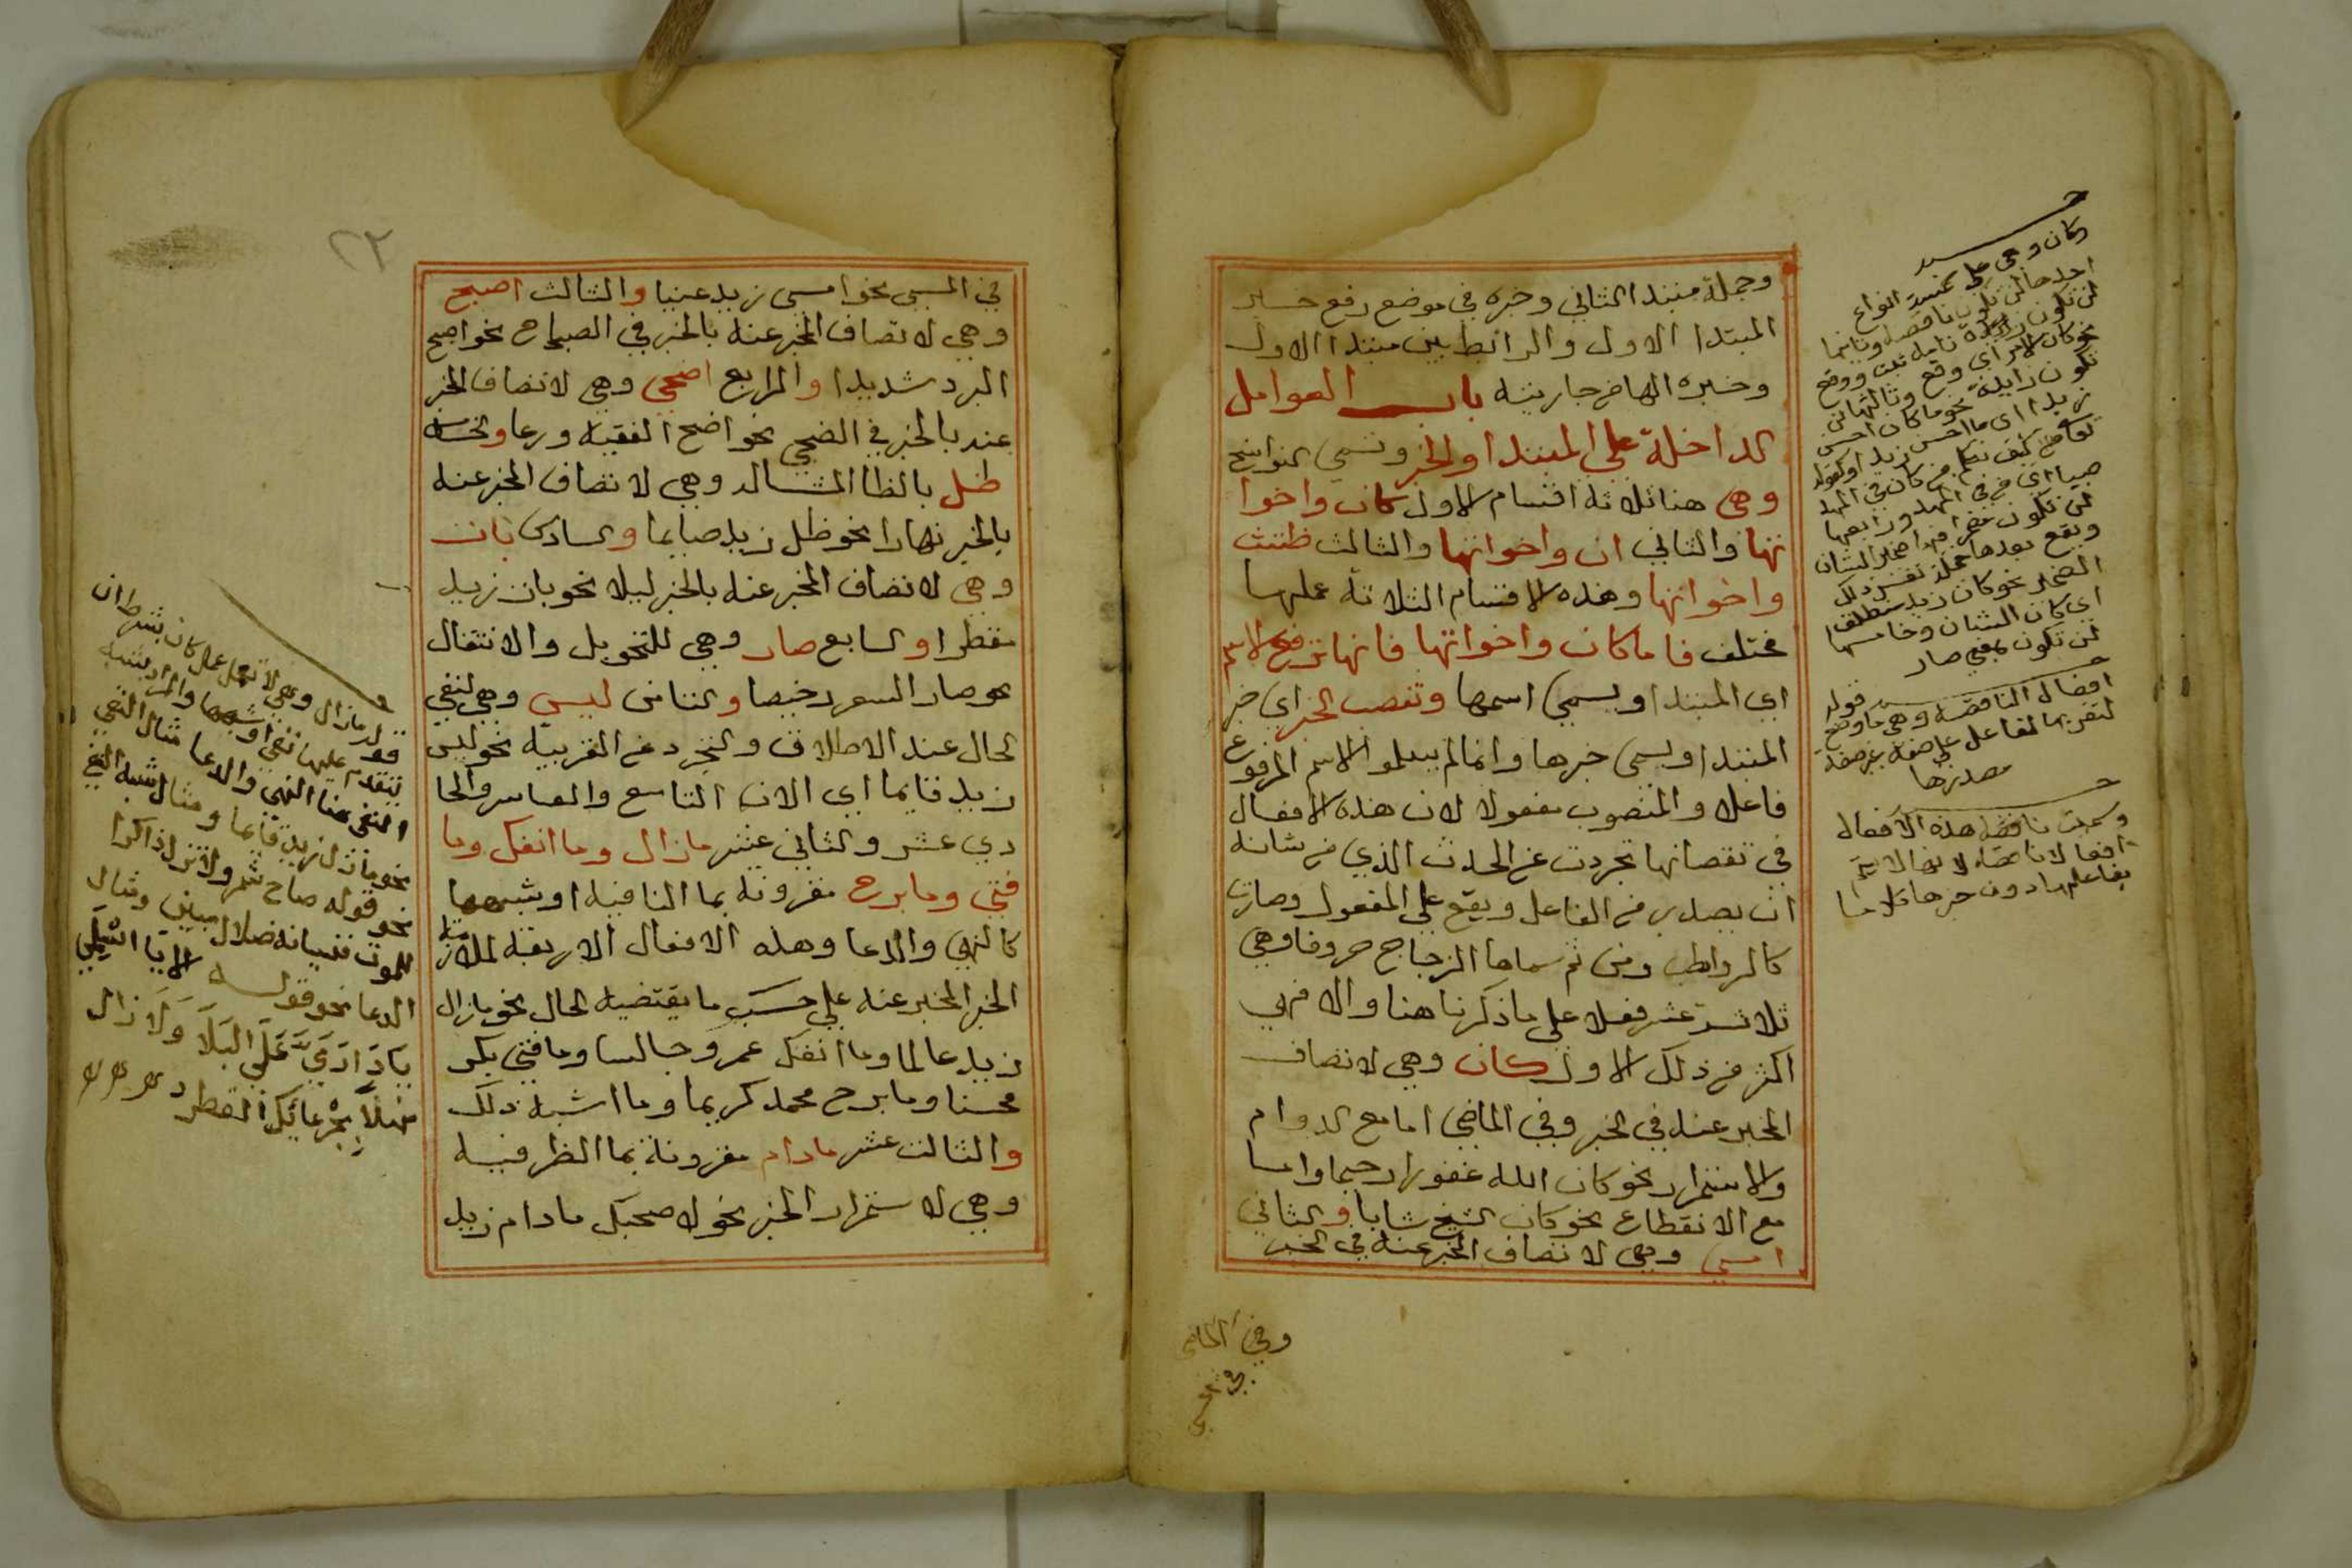 وجملة مبتدا الثاني وخبره في موضع رفع خبر
المبتدا الاول والرابط بين مبتدا الاول
وخبره الها من جاريته باب العوامل
الداخلة علي المبتدا والخبر وتسمي النواسخ
وهي هنا ثلاثة اقسام الاول كان واخوا
تها والثاني ان واخواتها والثالث ظننت
واخواتها وهذه الاقسام الثلاثة عملها
مختلف فاما كان واخواتها فانها ترفع الاسم
اي المبتدا ويسمي اسمها وتنصب الخبر اي خبر
المبتدا ويسمي خبرها وانما لم يسموا الاسم المرفوع
فاعلا والمنصوب مفعولا لان هذه الافعال
في نقصانها تجردت عن الحدث الذي من شانه
ان يصدر من الفاعل ويقع علي المفعول وصارت
كالروابط ومن ثم سماها الزجاج حروفا وهي
ثلاثة عشر فعلا علي ما ذكرنا هنا والا فهي
اكثر من ذلك الاول كان وهي لاتصاف
المخبر عنه في الخبر وفي الماضي اما مع الدوام
والاستمرار نحو كان الله غفورا رحيما واما
مع الانقطاع نحو كان الشيخ شابا والثاني
امسي وهي لاتصاف المخبر عنه في الخبر
وكان وهي علي خمسة انواع
احدها ان تكون ناقصة وثانيها
ان تكون تامة
نحو كان الامر اي وقع وثالثها ان
تكون زايدة نحو ما كان احسن
زيدا اي ما احسن زيدا وكقوله
تعالي كيف نكلم من كان في المهد
صبيا اي من في المهد ورابعها
ان تكون مضمرا فيها ضمير الشان
ويقع بعدها جملة تفسر ذلك
الضمير نحو كان زيد منطلق
اي كان الشان وخامسها
ان تكون بمعني صار
قوله
افعال الناقصة وهي ما وضع
لتقرير الفاعل علي صفة غير صفة
مصدرها
وسميت ناقصة هذه الافعال
افعالا ناقصة لانها لا تتم
بفاعلها دون خبرها كلاما
وفي الماضي
٢٢
في المسي نحو امسي زيد غنيا والثالث اصبح
وهي لاتصاف المخبر عنه بالخبر في الصباح نحو اصبح
البرد شديدا والرابع اضحي وهي لاتصاف المخبر
عنه بالخبر في الضحي نحو اضحي الفقيه ورعا والخامسة
ظل بالظا المشالة وهي لاتصاف المخبر عنه
بالخبر نهارا نحو ظل زيد صايما والسادس بات
وهي لاتصاف المخبر عنه بالخبر ليلا نحو بات زيد
مفطرا والسابع صار وهي للتحويل والانتقال
نحو صار السعر رخيصا والثامن ليس وهي لنفي
الحال عند الاطلاق والتجرد عن القرينة نحو ليس
زيد قايما اي الان التاسع والعاشر والحا
دي عشر والثاني عشر مازال وما انفك وما
فتي وما برح مقرونة بما النافية او شبهها
كالنهي والدعا وهذه الافعال الاربعة لملازمة
الخبر المخبر عنه علي حسب ما يقتضيه الحال نحو مازال
زيد عالما وما انفك عمرو جالسا وما فتي بكر
محسنا وما برح محمد كريما وما اشبه ذلك
والثالث عشر مادام مقرونة بما الظرفية
وهي لاستمرار الخبر نحو لا صحبك مادام زيد
قوله مازال وهي لا تعمل عمل كان بشرط ان
يتقدم عليها نفي او شبهها والمراد بشبه
النفي هنا النهي والدعا مثال النفي
نحو مازال زيد قايما ومثال شبه النفي
نحو قوله صاح شمر ولا تزل ذاكرا
للموت فنسيانه ضلال مبين ومثال
الدعا نحو قوله الا يا اسلمي
يَا دَارَ مَيَّ عَلَي البَلَا وَلَا زَال
منهلا بجرعائك القطر